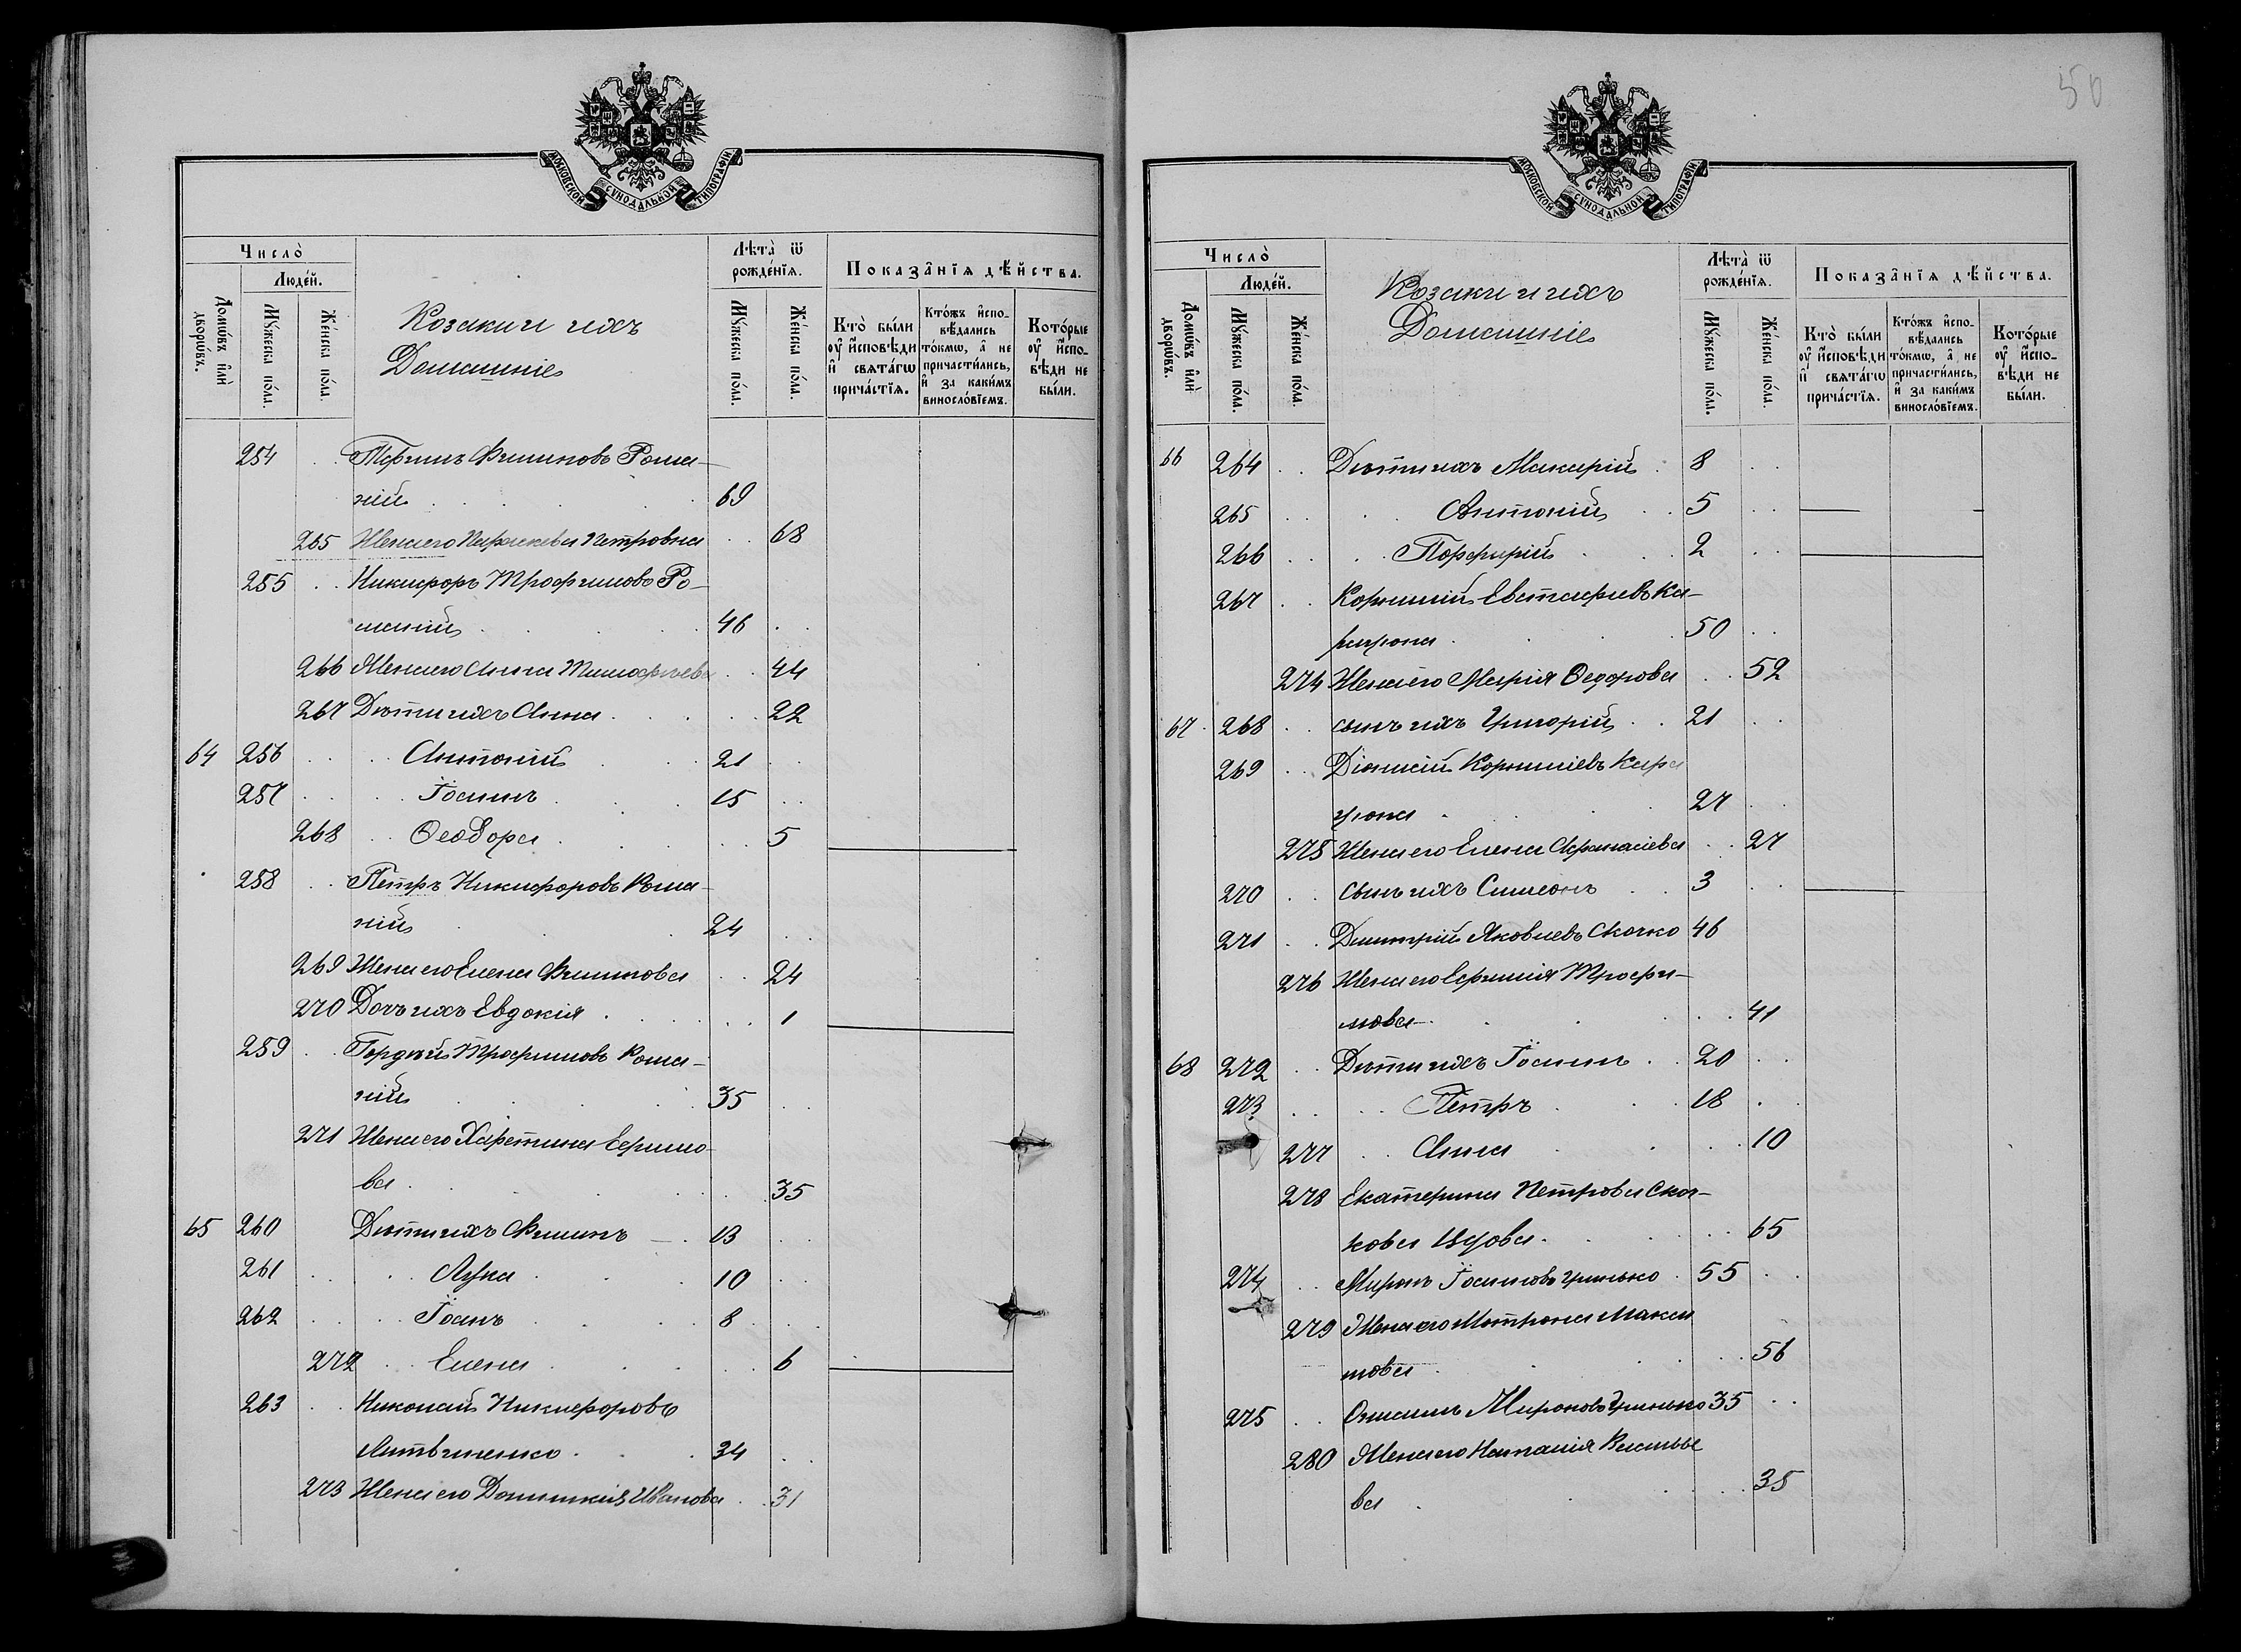 МОСКОВСКОЙ СѴНОДАЛЬНОЙ ТИПОГРАФІИ
Число̀
Люде́й.
Домѡ́въ и҆лѝ дворѡ́въ.
Мꙋ́жеска по́ла.
Же́нска по́ла.
Козаки и ихъ
Домашніе
Лѣта̀ ѿ рожде́нїѧ.
Мꙋ́жеска по́ла.
Же́нска по́ла.
Показа̂нїѧ дѣ́йства.
Кто̀ бы́ли ᲂу҆ и҆́сповѣди и҆ свѧта́гѡ прича́стїѧ.
Кто́жъ и҆спо-вѣ́дались то́кмѡ, а҆ не причасти́лись, и҆ за каки́мъ виносло́вїемъ.
Кото́рые ᲂу҆ и҆́спо-вѣди не бы́ли.
254 Филиповъ Рома-
ній 69
265 Жена его Параскева Петровна 68
255 Никифоръ Трофимовъ Ро-
маній 46
266 Жена его Анна Тимофеева 44
267 Дѣти ихъ Анна 22
64 256 Антоній 21
257 Іоаннъ 15
268 Ѳеодора 5
258 Петръ Никифоровъ Рома-
ній 24
269 Жена его Елена Филипова 24
270 Дочь ихъ Евдокія 1
259 Гордѣй Трофимовъ Рома-
ній 35
271 Жена его Харетина Ефимо-
ва 35
65 260 Дѣти ихъ Филипъ 13
261 Лука 10
262 Іоанъ 8
272 Елена 6
263 Николай Никифоровъ
Литвиненко 34
273 Жена его Домникія Иванова 31
50
МОСКОВСКОЙ СѴНОДАЛЬНОЙ ТИПОГРАФІИ
Число̀
Люде́й.
Домѡ́въ и҆лѝ дворѡ́въ.
Мꙋ́жеска по́ла.
Же́нска по́ла.
Козаки и ихъ
Домашніе
Лѣта̀ ѿ рожде́нїѧ.
Мꙋ́жеска по́ла.
Же́нска по́ла.
Показа̂нїѧ дѣ́йства.
Кто̀ бы́ли ᲂу҆ и҆́сповѣди и҆ свѧта́гѡ прича́стїѧ.
Кто́жъ и҆спо-вѣ́дались то́кмѡ, а҆ не причасти́лись, и҆ за каки́мъ виносло́вїемъ.
Кото́рые ᲂу҆ и҆́спо-вѣди не бы́ли.
66 264 Дѣти ихъ Макарій 8
265 Антоній 5
266 Порфирій 2
267 Корнилій Евстафіевъ Ка-
50
274 Жена его Марія Ѳедорова 52
67 268 сынъ ихъ Григорій 21
269 Діонисій Корниліевъ Кара
27
275 Жена его Елена Афанасіева 27
270 Сынъ ихъ Симеонъ 3
271 Дмитрій Яковлевъ Скочко 46
276 Жена его Ефимія Трофи-
мова 41
68 272 Дѣти ихъ Іоаннъ 20
273 Петръ 18
277 Анна 10
278 Екатерина Петрова Скоч-
кова вдова 65
274 Миронъ Іоанновъ Гринько 55
279 Жена его Матрона Макси
мова 56
275 Онисимъ Мироновъ Гринько 35
280 Жена его Наталія Василье
ва 35